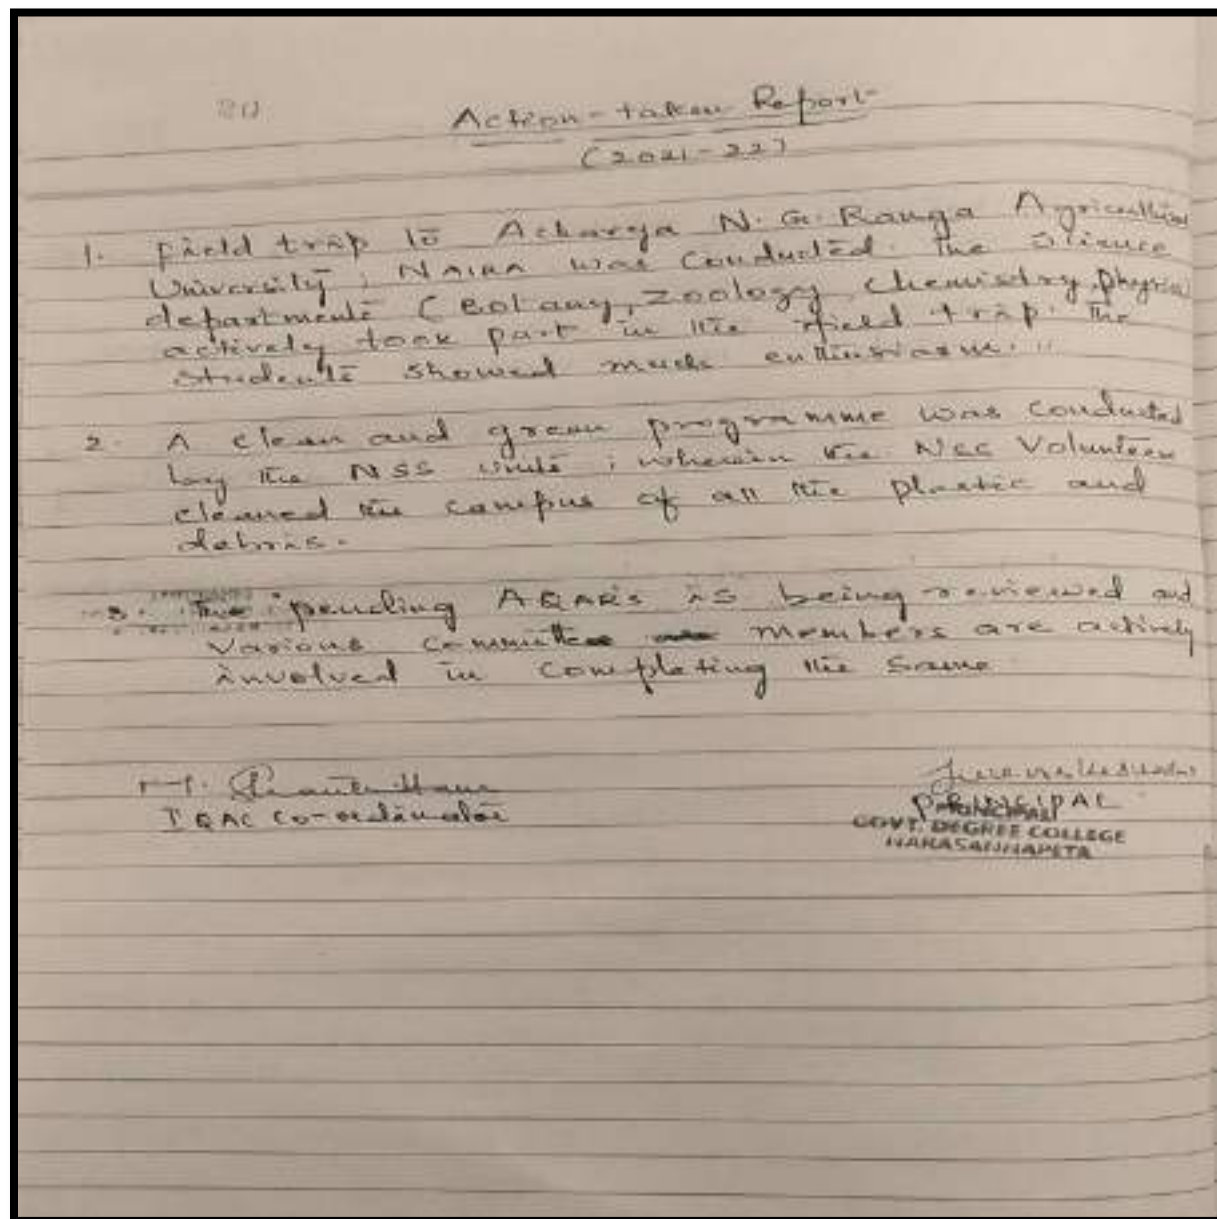 Action-taken Report
(2021-22)
1. Field trip to Acharya N.G. Ranga Agricultural
University, NAIRA was conducted. The Science
departments (Botany, Zoology, Chemistry, physics
actively took part in the field trip. The
students showed much enthusiasm.
2. A clean and green programme was conducted
by the NSS units; wherein the NSS Volunteers
cleaned the campus of all the plastic and
debris.
3. The pending AQAR's is being reviewed and
various committee members are actively
involved in completing the same
IQAC Co-ordinator
PRINCIPAL
GOVT. DEGREE COLLEGE
NARASANNAPETA